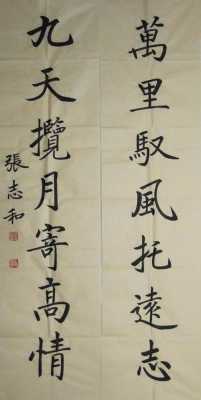 萬里馭風托遠志
九天攬月寄高情
張志和